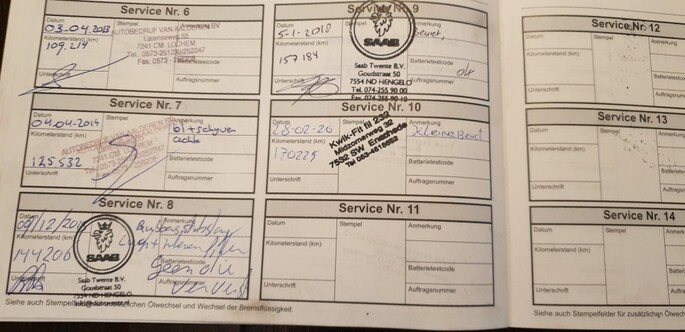 Service Nr. 6
Datum
Stempel
Anmerkung BV
03-04-2013
AUTOBEDRIJF VAN AALDEREN
Larenseweg 55
7241 CM LOCHEM
Kilometerstand (km)
109.214
Unterschrift
Auftragsnummer
Service Nr. 7
Datum
Stempel
Anmerkung
04-04-2014
AUTOBEDRIJF VAN AALDEREN
7241 CM LOCHEM
bl + schyven
achter
Kilometerstand (km)
125532
Batterietestcode
Unterschrift
Auftragsnummer
Service Nr. 8
Datum
Anmerkung
Kilometerstand (km)
144200
SAAB
Geen olie
ververst
Unterschrift
Saab Twente B.V.
Goudstraat 50
7554 ND HENGELO
Service Nr. 9
Datum
Anmerkung
5-1-2018
Beurt,
Kilometerstand (km)
157184
SAAB
olie
Saab Twente B.V.
Goudstraat 50
7554 ND HENGELO
Tel. 074-255 90 00
Fax. 074-255 90 10
Unterschrift
Batterietestcode
Auftragsnummer
Service Nr. 10
Datum
Anmerkung
28-02-20
Kleine Beurt
Kilometerstand (km)
170225
Kwik-Fit fil 232
7532 SW Enschede
Unterschrift
Batterietestcode
Auftragsnummer
Service Nr. 11
Datum
Stempel
Anmerkung
Kilometerstand (km)
Batterietestcode
Unterschrift
Auftragsnummer
Siehe auch Stempelfelder
Ölwechsel und Wechsel der Bremsflüssigkeit.
Service Nr. 12
Datum
Stempel
Anmerkung
Kilometerstand (km)
Batterietestcode
Unterschrift
Auftragsnummer
Service Nr. 13
Datum
Stempel
Anmerkung
Kilometerstand (km)
Batterietestcode
Unterschrift
Auftragsnummer
Service Nr. 14
Datum
Stempel
Anmerkung
Kilometerstand (km)
Batterietestcode
Unterschrift
Auftragsnummer
Siehe auch Stempelfelder für zusätzlichen Ölwechsel